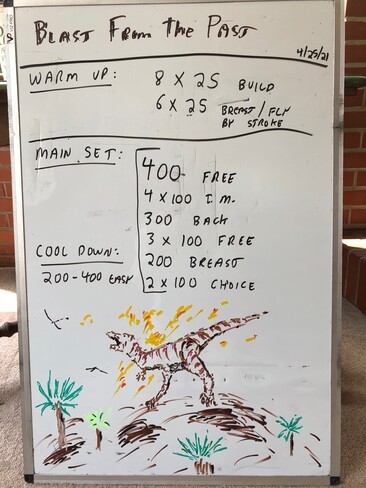 BLAST FROM THE PAST
4/25/21
WARM UP: 8 X 25 BUILD
6 X 25 BREAST/FLY
BY STROKE
MAIN SET: 400 FREE
4 x 100 I.M.
300 BACK
3 x 100 FREE
200 BREAST
2 x 100 CHOICE
COOL DOWN:
200-400 EASY